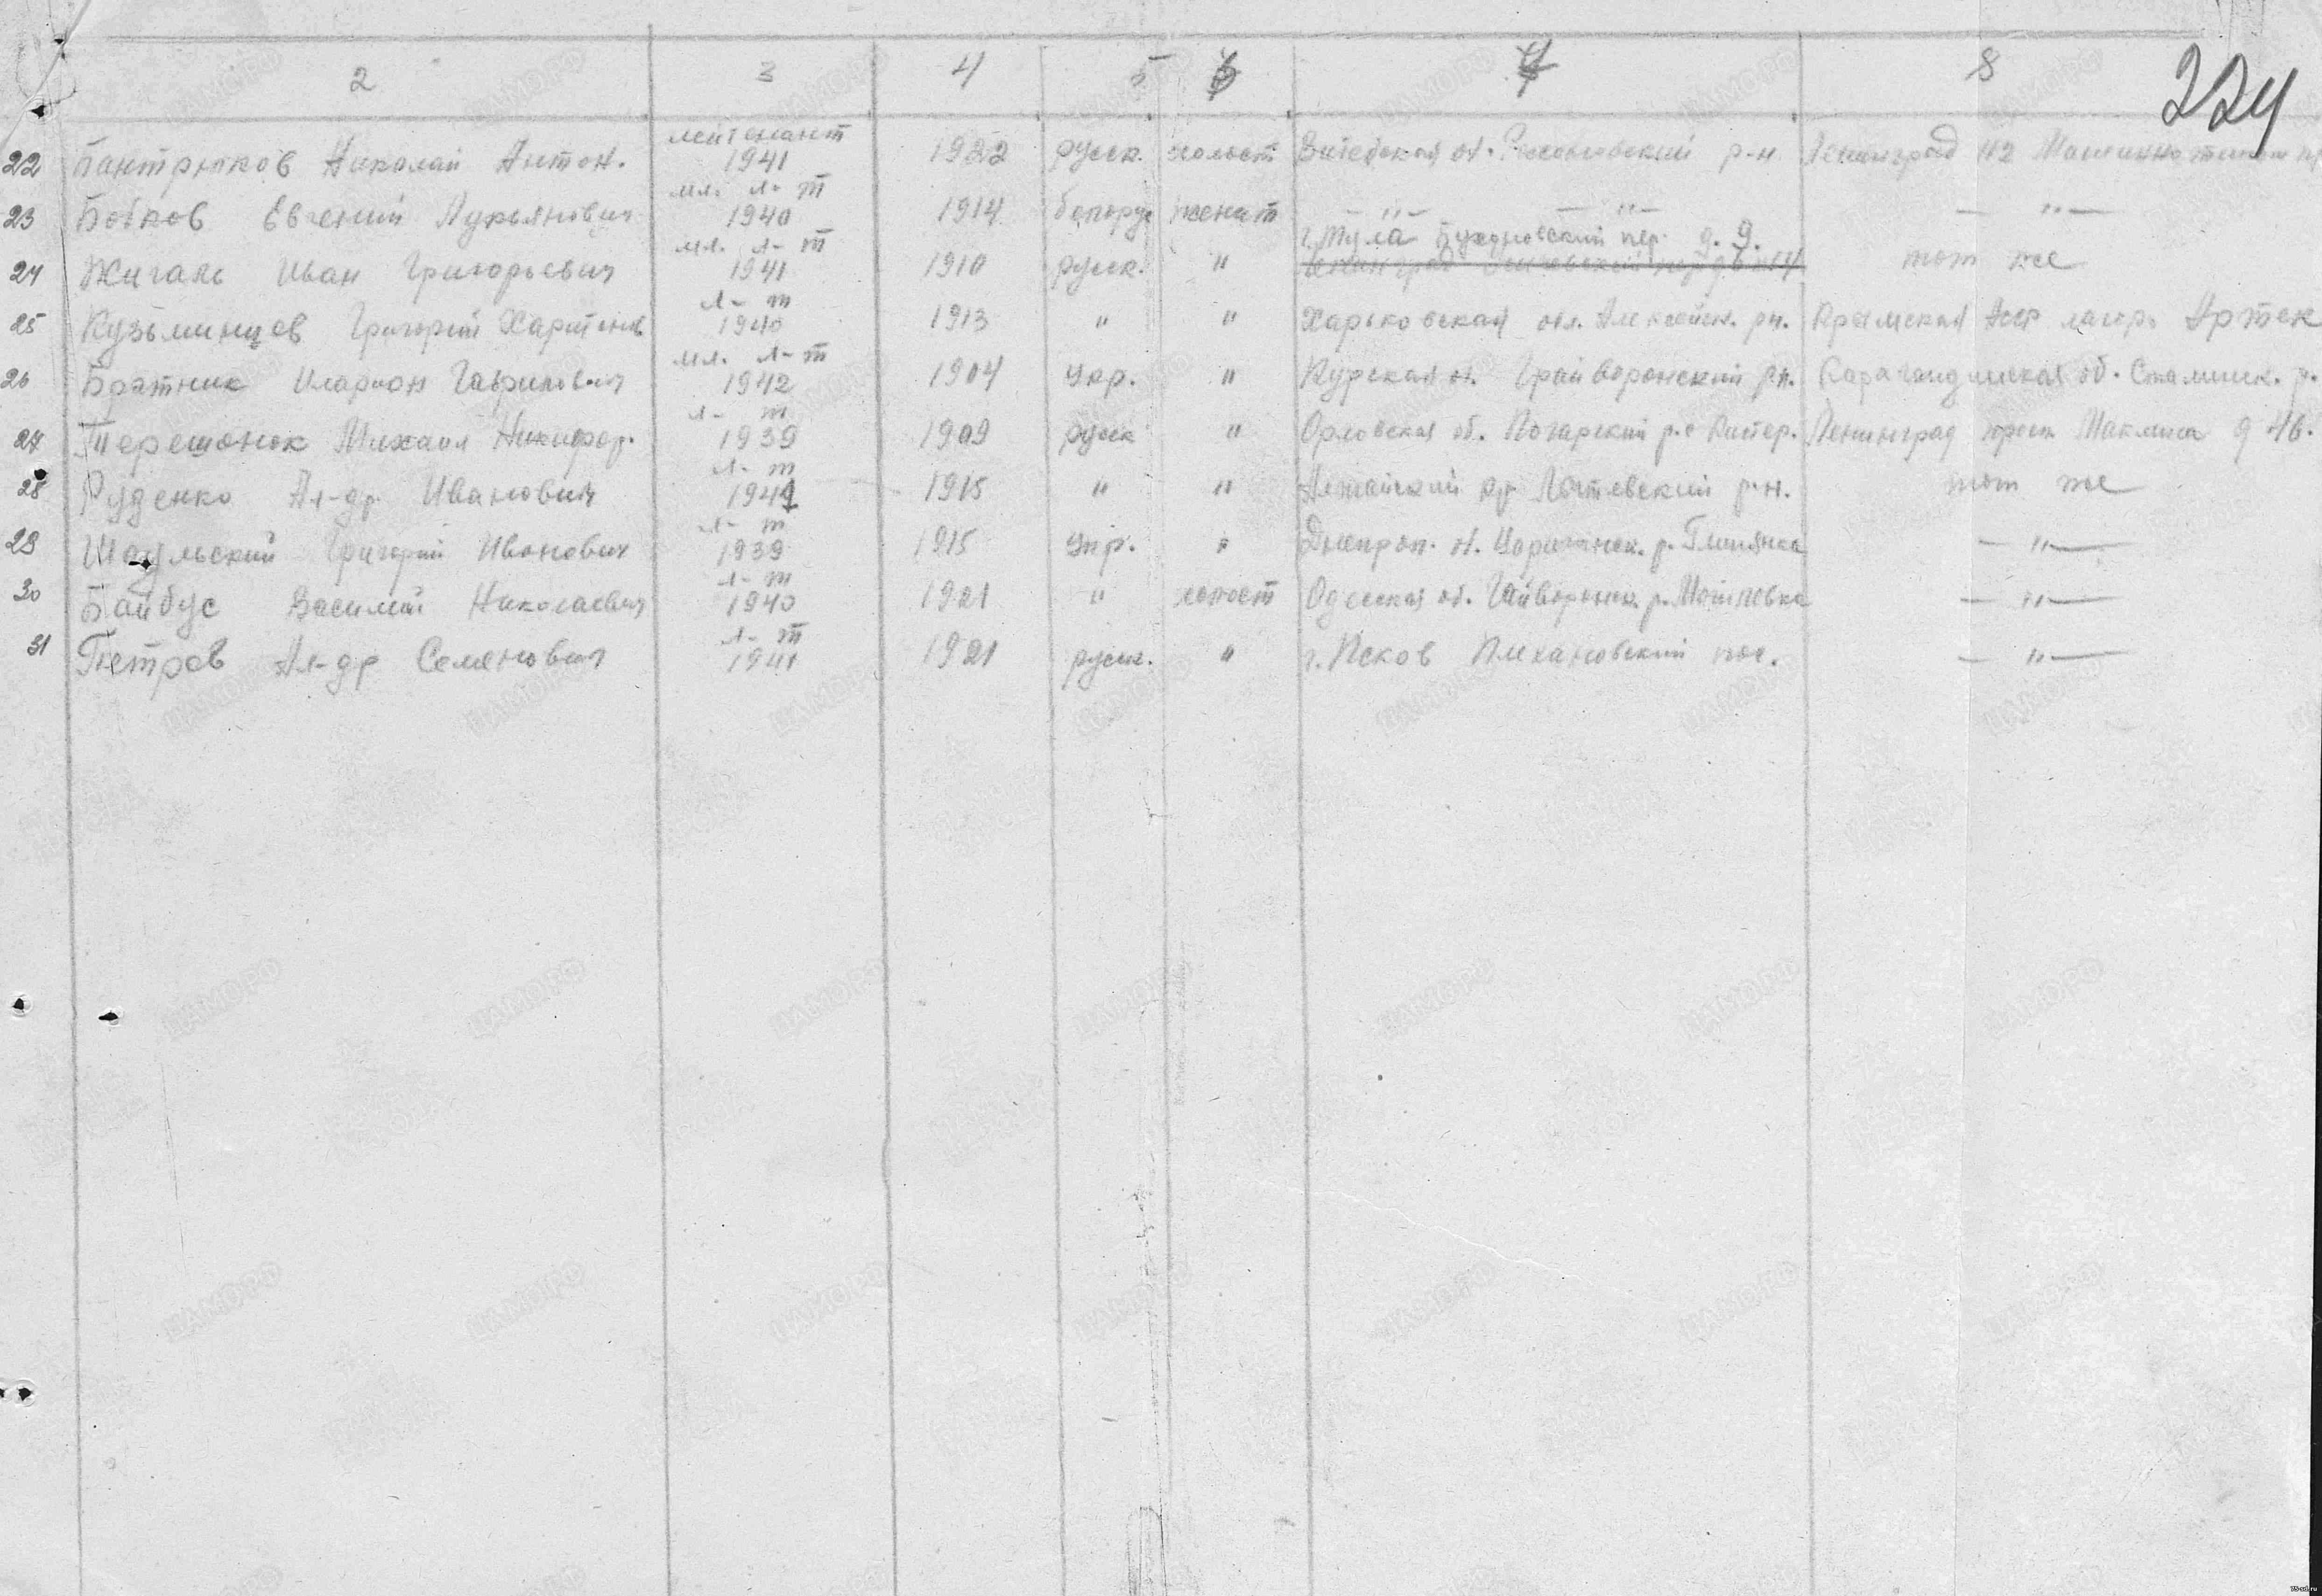 2 3 4 5 6 7 8
224
лейтенант
22 Бантрюков Николай Антон. 1941 1922 русск. холост Витебская об. р-н Ленинград 42
мл. л-т
23 Бобков Евгений Лукьянович 1940 1914 белорус женат — " — — " — — " —
мл. л-т г. Тула пер. д. 9.
24 Жигаль Иван Григорьевич 1941 1910 русск. " Ленинград тот же
л-т
25 Кузьминцев Григорий Харитонов 1940 1913 " " Харьковская обл. Алексеевск. рн. Крымская Асср лагерь Артек
мл. л-т
26 Братник Иларион Гаврилович 1942 1904 укр. " Курская об. Грайворонский рн. Карагандинская об. Сталинск. р.
л-т
27 Терешонок Михаил Никифор. 1939 1909 русск " Орловская об. Погарский р. Ленинград просп. д 46.
л-т
28 Руденко Ал-др Иванович 1941 1915 " " Алтайский кр. Локтевский р-н. тот же
л-т
29 Шаульский Григорий Иванович 1939 1915 укр. " Днепроп. об. Царичанск. р. — " —
л-т
30 Байбус Василий Николаевич 1940 1921 " холост Одесская об. Гайворонск. р. — " —
л-т
31 Петров Ал-др Семенович 1941 1921 русск. " г. Псков — " —